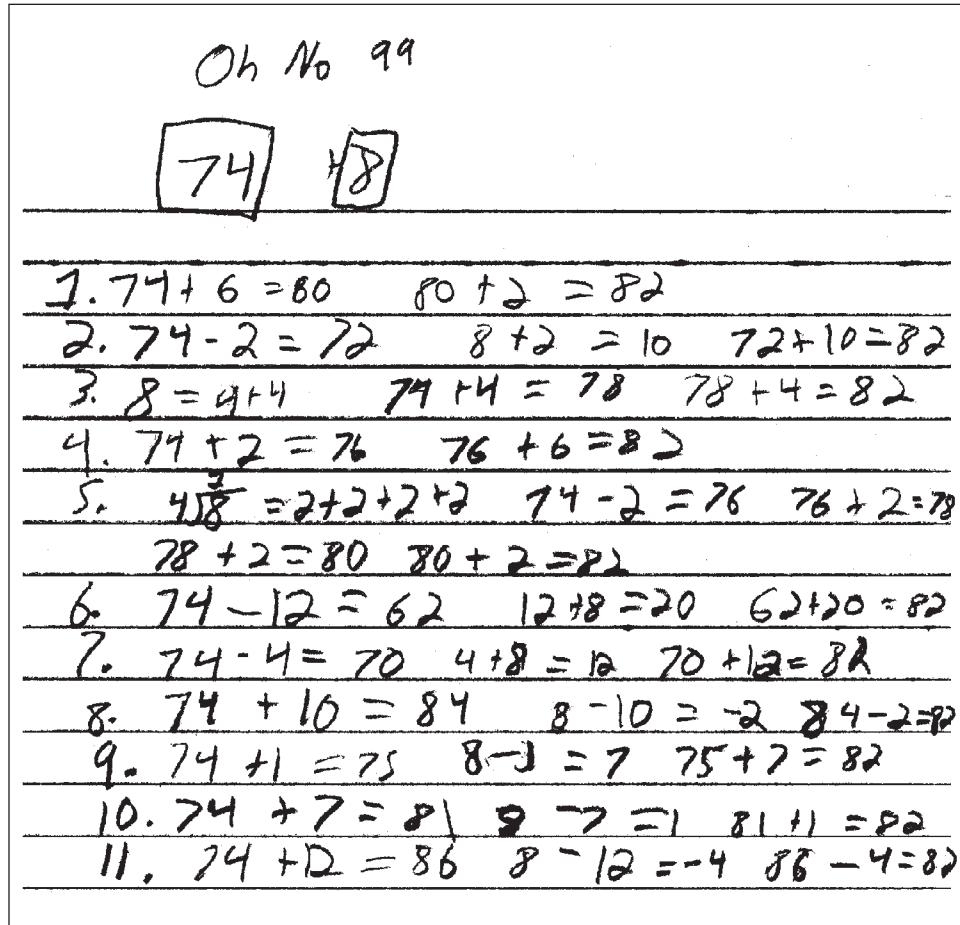 Oh No 99
74 +8
1. 74 + 6 = 80 80 + 2 = 82
2. 74 - 2 = 72 8 + 2 = 10 72 + 10 = 82
3. 8 = 4+4 74 + 4 = 78 78 + 4 = 82
4. 74 + 2 = 76 76 + 6 = 82
5. 4√8 2 = 2+2+2+2 74 - 2 = 76 76 + 2 = 78
78 + 2 = 80 80 + 2 = 82
6. 74 - 12 = 62 12 + 8 = 20 62 + 20 = 82
7. 74 - 4 = 70 4 + 8 = 12 70 + 12 = 82
8. 74 + 10 = 84 8 - 10 = -2 84 - 2 = 82
9. 74 + 1 = 75 8 - 1 = 7 75 + 7 = 82
10. 74 + 7 = 81 8 - 7 = 1 81 + 1 = 82
11. 74 + 12 = 86 8 - 12 = -4 86 - 4 = 82